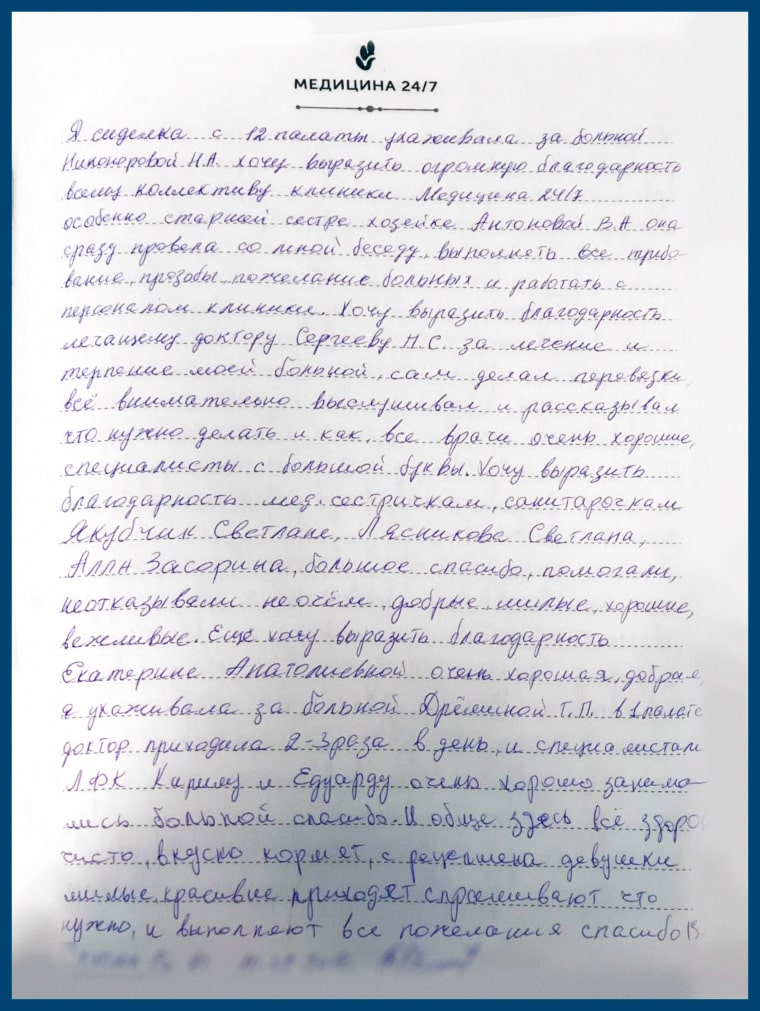 МЕДИЦИНА 24/7
Я сиделка с 12 палаты ухаживала за больной
Никоноровой Н.А. хочу выразить огромную благодарность
всему коллективу клиники Медицина 24/7
особенно старшей сестре хозейке Антоновой В.А она
сразу провела со мной беседу, выполнять все требо-
вание, прозьбы, пожелание больных и работать с
персоналом клиники. Хочу выразить благодарность
лечащему доктору Сергееву П.С. за лечение и
терпение моей больной, сам делал перевязки,
всё внимательно выслушивал и рассказывал
что нужно делать и как, все врачи очень хорошие,
специалисты с большой буквы. Хочу выразить
благодарность мед.сестричкам, санитарочкам
Якубчик Светлане, Лясникова Светлана,
Алла Засорина, большое спасибо, помогали,
неотказывали не очём, добрые, милые, хорошие,
вежливые. Ещё хочу выразить благодарность
Екатерине Анатолиевной очень хорошая, добрая,
я ухаживала за больной Дрёминой Т.П. в 1 палате
доктор приходила 2-3 раза в день, и специалистам
ЛФК Кирилу и Едуарду очень хорошо занима-
лись большой спасибо. И обще здесь всё здоро
чисто, вкусно кормят, с рецепшена девушки
милые, красивые приходят спрашивают что
нужно, и выполняют все пожелания спасибо